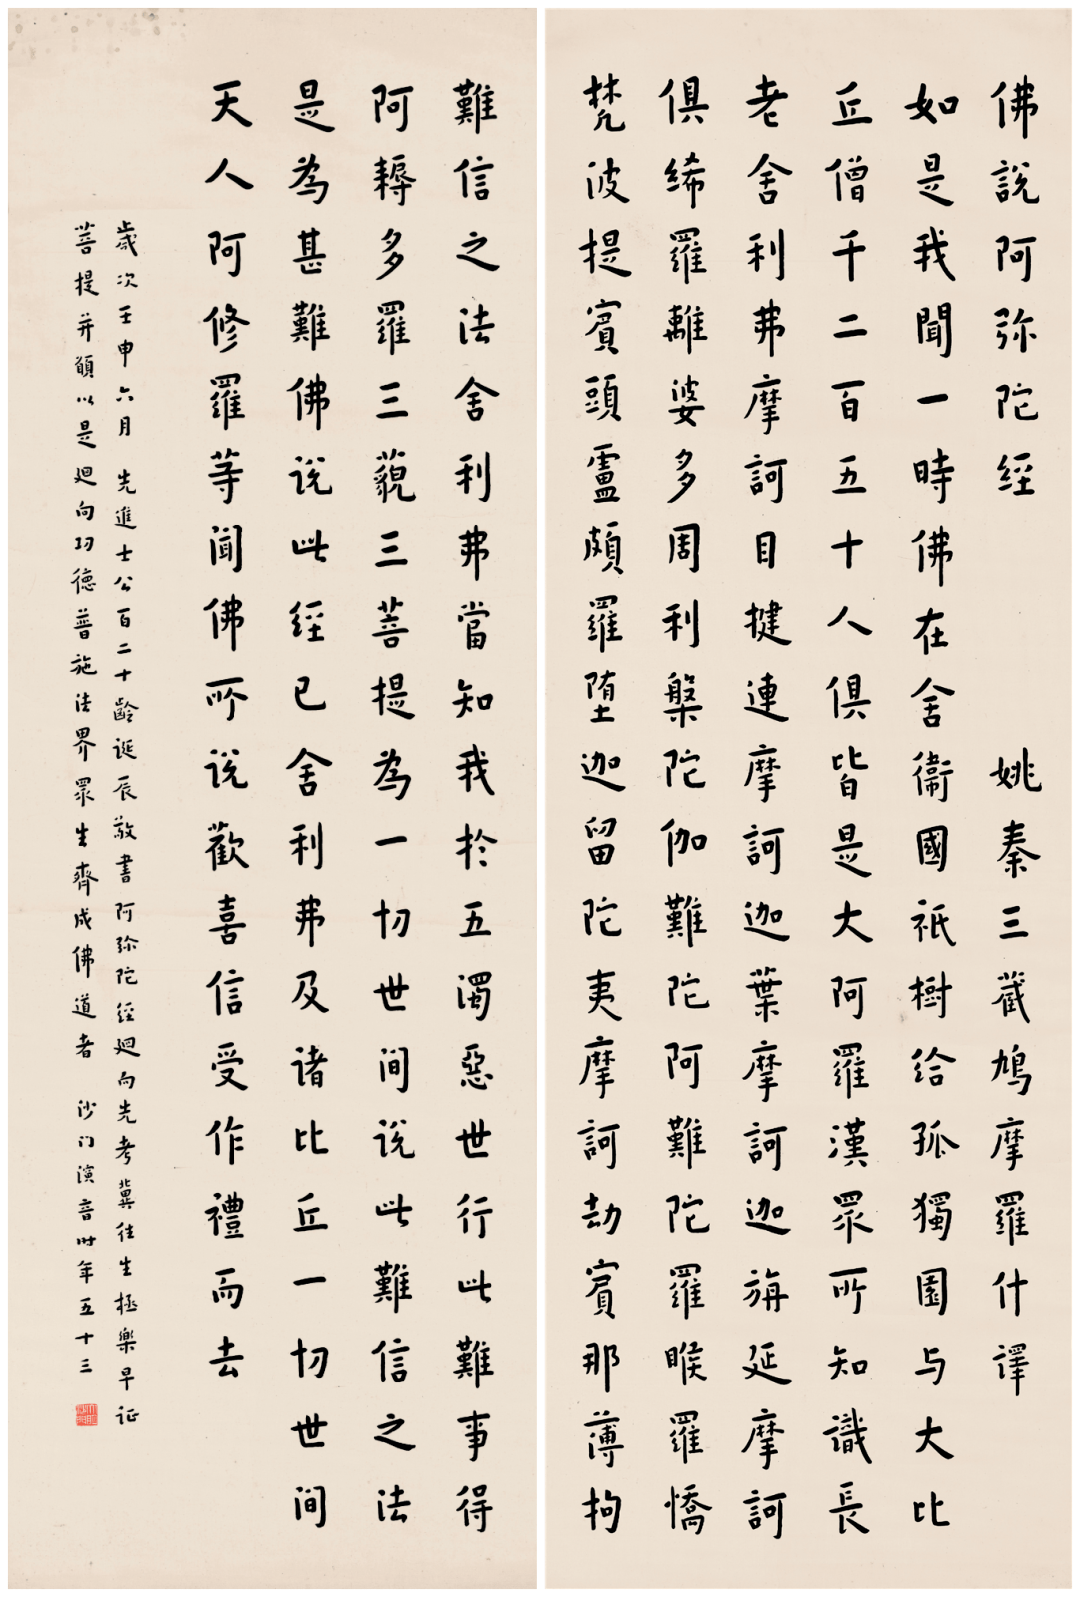 佛說阿弥陀经 姚秦三藏鳩摩羅什譯
如是我聞一時佛在舍衞國祇樹给孤獨園与大比
丘僧千二百五十人俱皆是大阿羅漢眾所知識長
老舍利弗摩訶目揵連摩訶迦葉摩訶迦旃延摩訶
俱絺羅離婆多周利槃陀伽難陀阿難陀羅睺羅憍
梵波提賓頭盧頗羅堕迦留陀夷摩訶劫賓那薄拘
難信之法舍利弗當知我於五濁惡世行此難事得
阿耨多羅三藐三菩提為一切世间说此難信之法
是為甚難佛说此经已舍利弗及诸比丘一切世间
天人阿修羅等闻佛所说歡喜信受作禮而去
歲次壬申六月 先進士公百二十齡诞辰敬書阿弥陀经廻向先考冀往生極樂早证
菩提并願以是廻向功德普施法界眾生齊成佛道者 沙门演音时年五十三